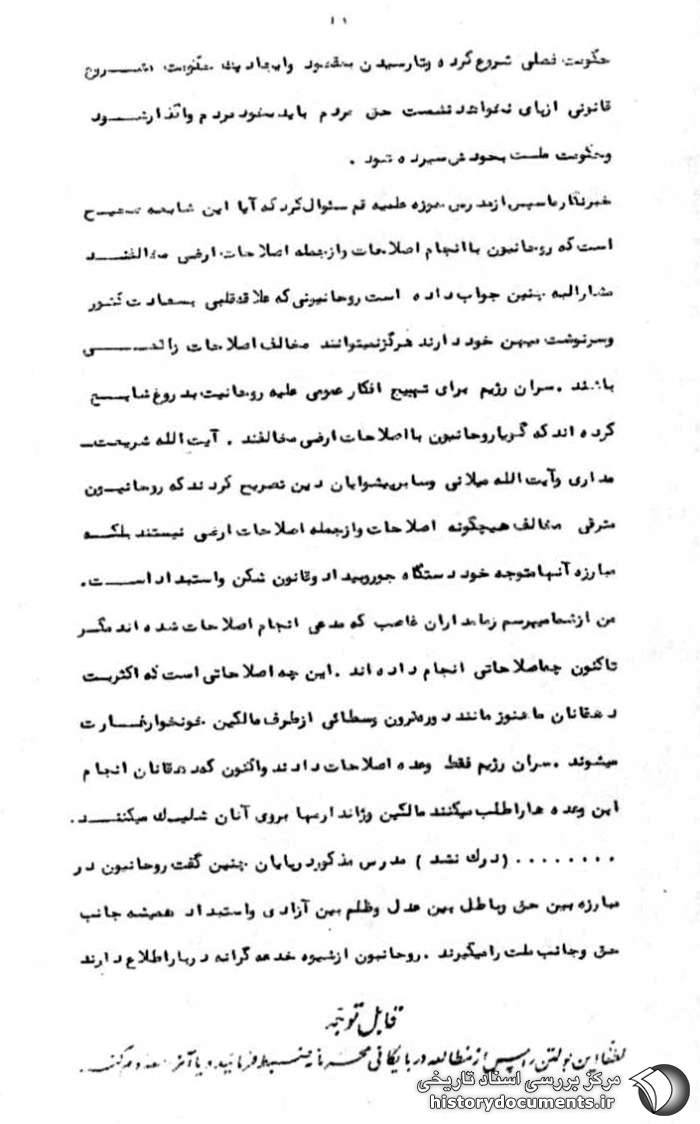 ۱۱
حکومت فصلی شروع کرده وتارسیدن بمقصود وایجاد یک حکومت مشروع
قانونی ازپای نخواهند نشست حق مردم باید بخود مردم واگذارشود
وحکومت ملت بخودش سپرده شود .
خبرنگارماسپس ازمدرس حوزه علمیه قم سئوال کرد که آیا این شایعه صحیح
است که روحانیون باانجام اصلاحات وازجمله اصلاحات ارضی مخالفند
مشارالیه چنین جواب داده است روحانیونی که علاقه قلبی بسعادت کشور
وسرنوشت میهن خود دارند هرگزنمیتوانند مخالف اصلاحات واقعی
باشند .سران رژیم برای تهییج افکار عمومی علیه روحانیت بدروغ شایع
کرده اند که گویاروحانیون بااصلاحات ارضی مخالفند . آیت الله شریعت
مداری وآیت الله میلانی وسایرپیشوایان دین تصریح کردند که روحانیون
مترقی مخالف هیچگونه اصلاحات وازجمله اصلاحات ارضی نیستند بلکه
مبارزه آنهامتوجه خود دستگاه جوروبیداد وقانون شکن واستبداد است.
من ازشمامیپرسم زمامداران غاصب که مدعی انجام اصلاحات شده اند مگر
تاکنون چه اصلاحاتی انجام داده اند .این چه اصلاحاتی است که اکثریت
دهقانان ماهنوز مانند دوره قرون وسطائی ازطرف مالکین خونخوارغارت
میشوند .سران رژیم فقط وعده اصلاحات دادند واکنون که دهقانان انجام
این وعده هاراطلب میکنند مالکین وژاندارمها بروی آنان شلیک میکنند.
........ (درک نشد ) مدرس مذکور درپایان چنین گفت روحانیون در
مبارزه بین حق وباطل بین عدل وظلم بین آزادی واستبداد همیشه جانب
حق وجانب ملت رامیگیرند .روحانیون ازشیوه خدعه گرانه دربار اطلاع دارند
قابل توجه
لطفا این بولتن را پس از مطالعه در بایگانی محرمانه ضبط فرمائید و یا آنرا معدوم کنید.
مرکز بررسی اسناد تاریخی
historydocuments.ir